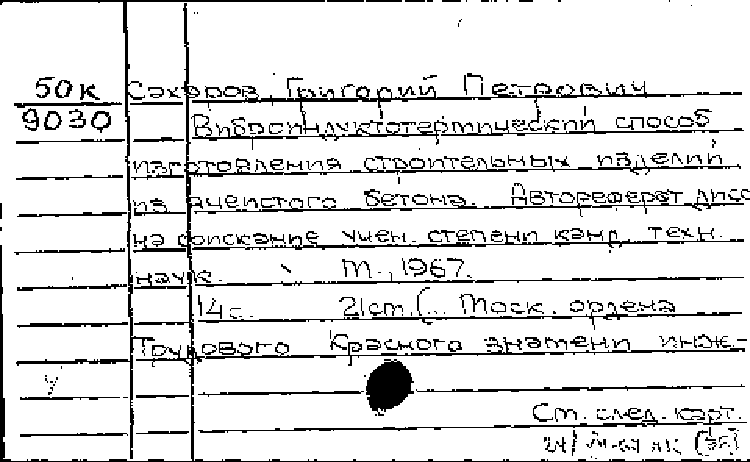 50к Сахаров, Григорий Петрович
9030 Виброиндуктотермический способ
изготовления строительных изделий
из ячеистого бетона. Автореферат дисс.
на соискание учен. степени канд. техн.
наук. М., 1967.
14 с. 21 см. (... Моск. ордена
Трудового Красного знамени инж.-
См. след. карт.